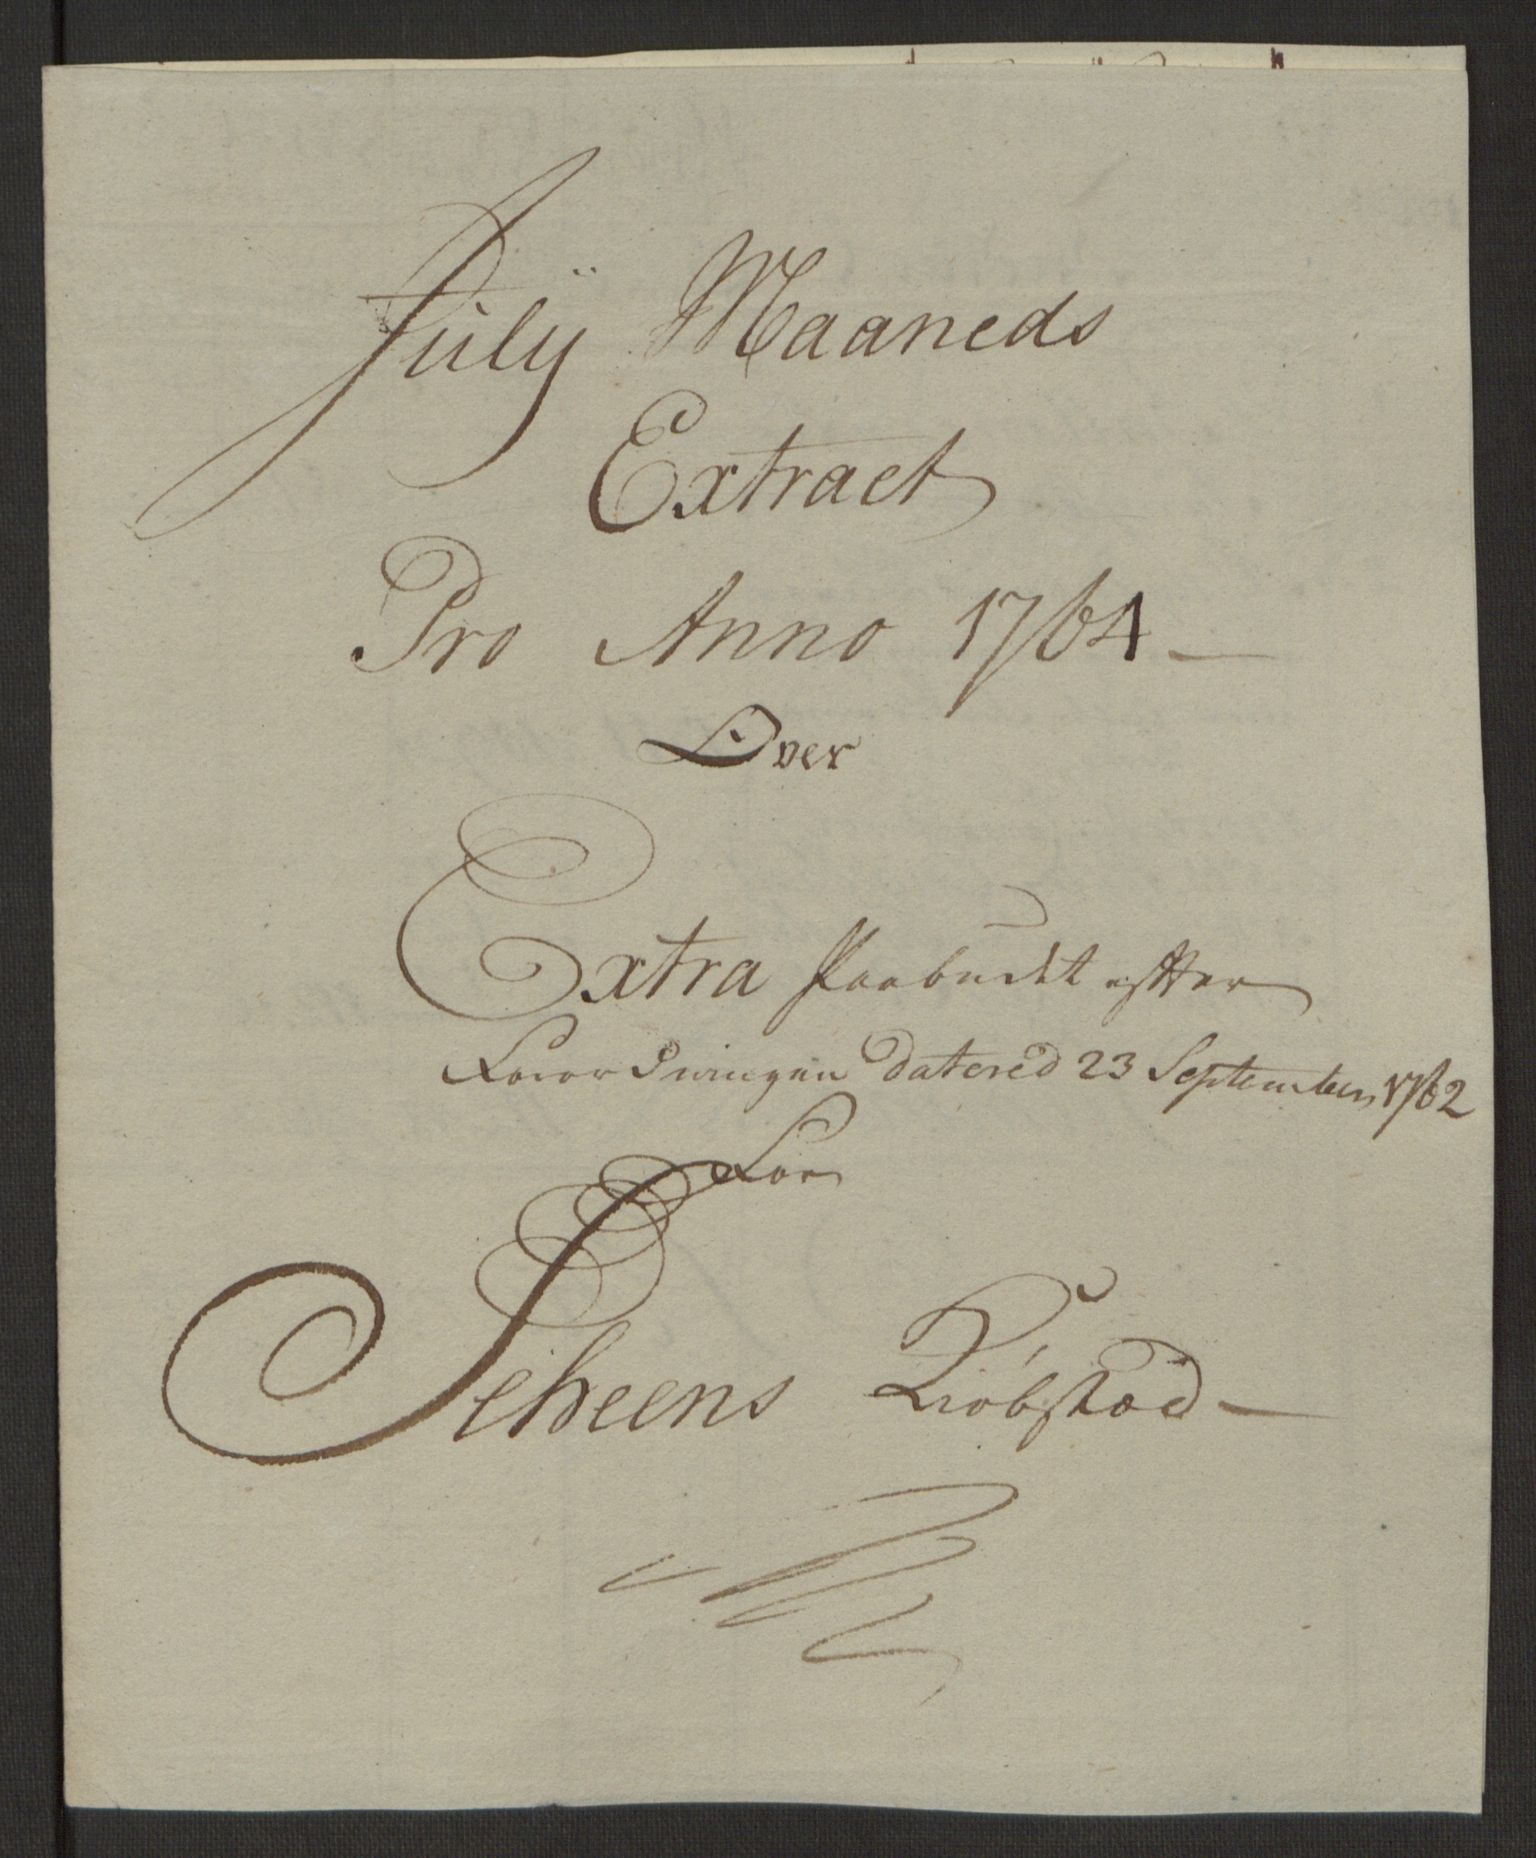 Julÿ Maaneds
Extract
Pro Anno 1764
Over
Extra Paabudet efter
Forordningen Datered 23 September 1762
For
Scheens Kiøbstæd